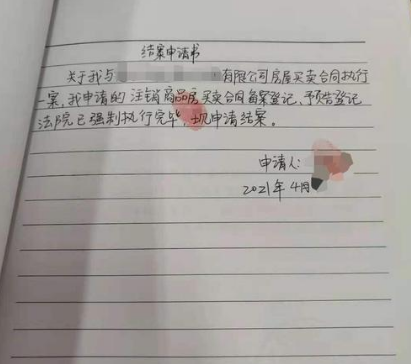 结案申请书
关于我与有限公司房屋买卖合同执行
一案,我申请的注销商品房买卖合同备案登记、预告登记
法院已强制执行完毕,现申请结案。
申请人:
2021年4月